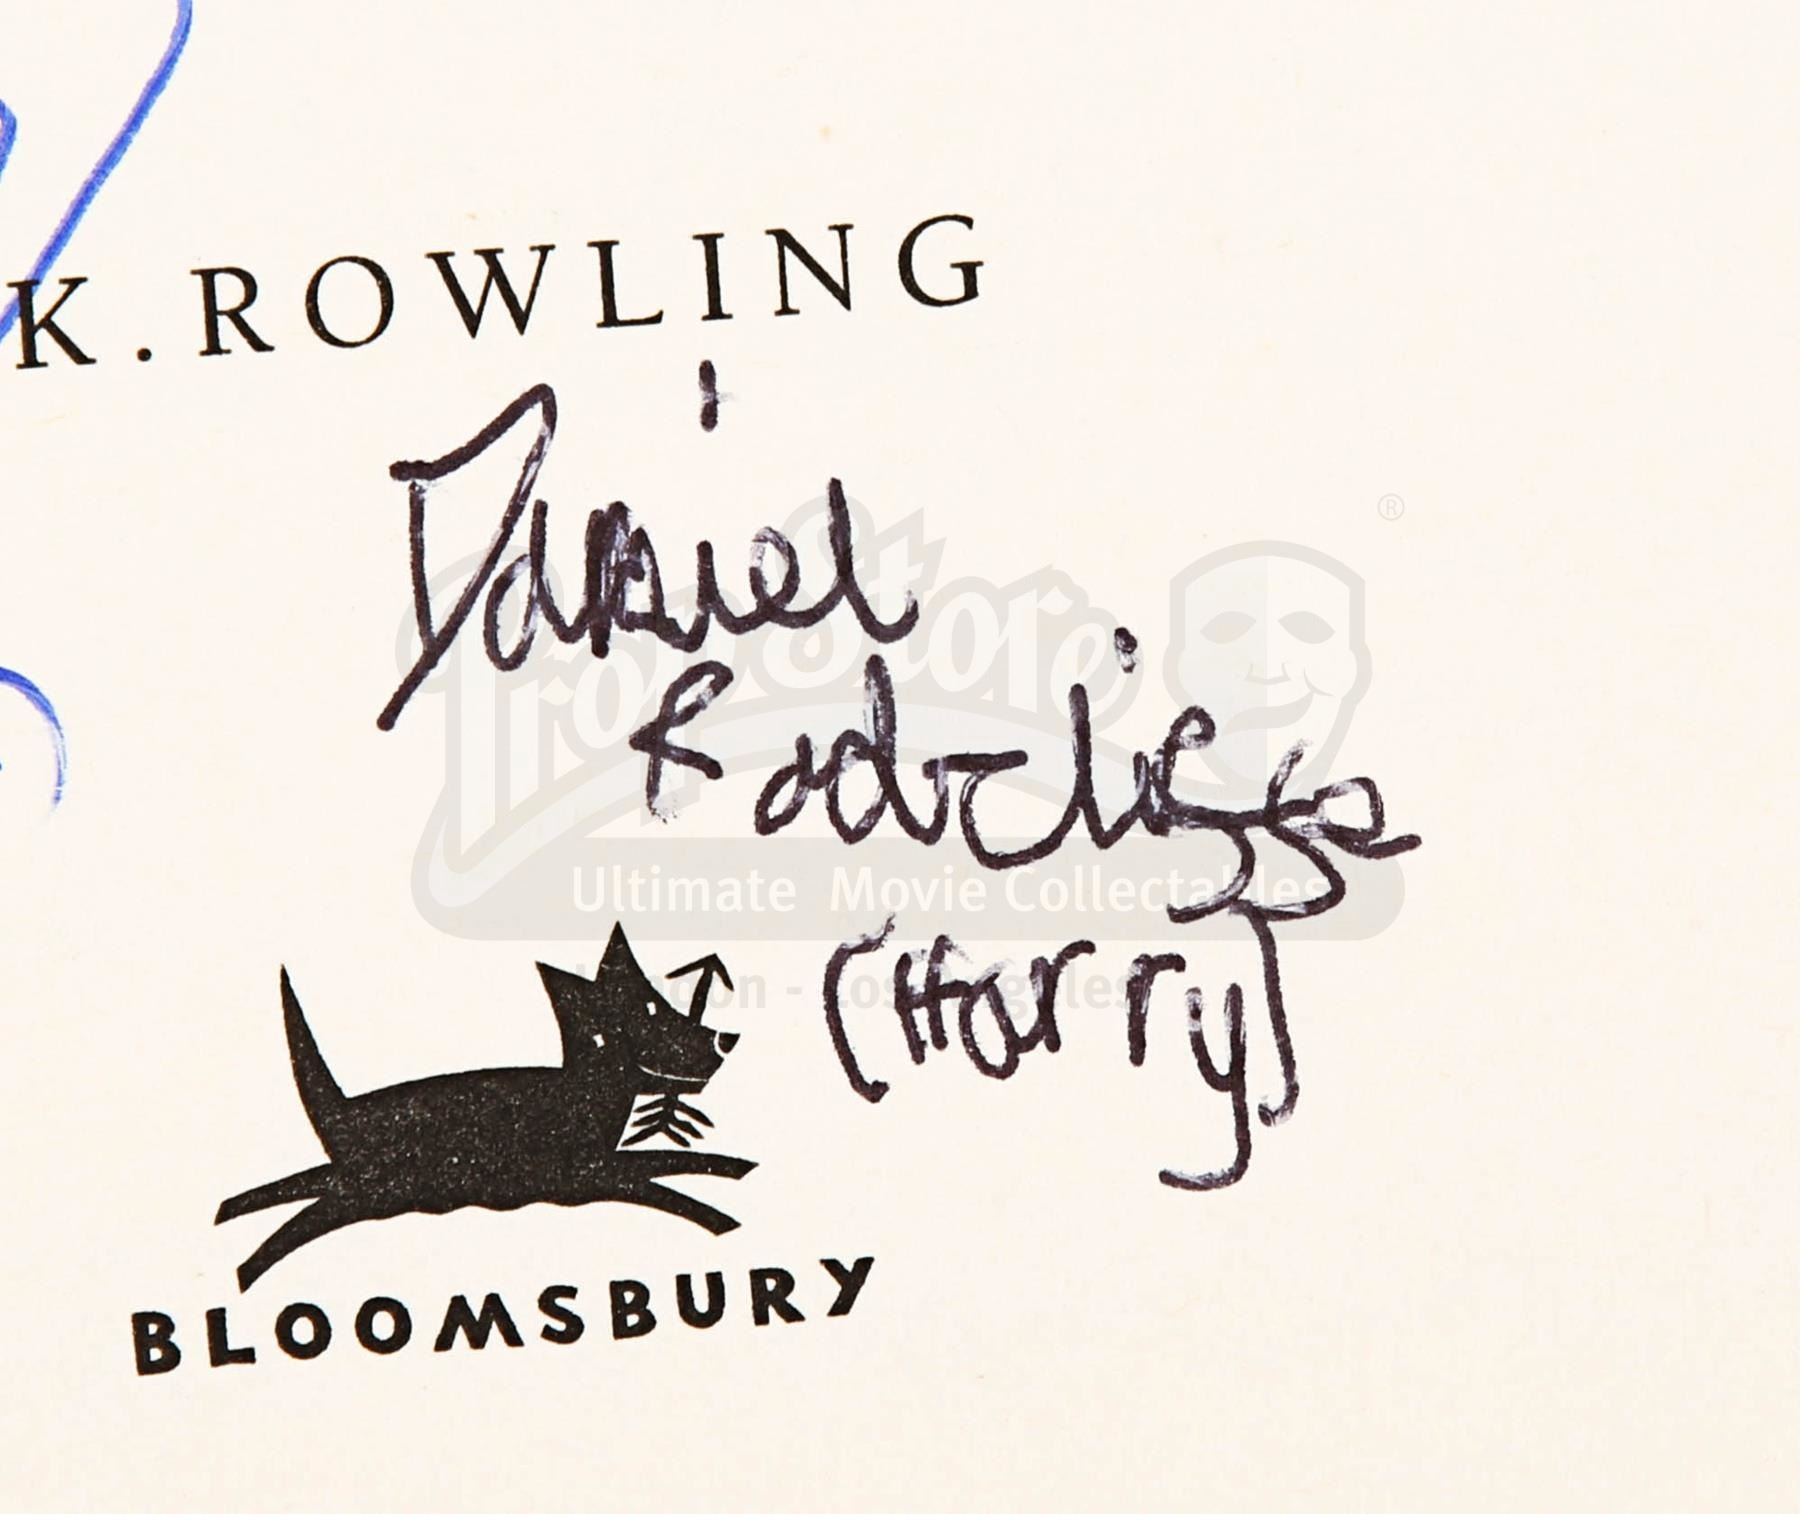 K. ROWLING
Daniel
Radcliffe
(Harry)
PropStore®
Ultimate Movie Collectables
London - Los Angeles
BLOOMSBURY